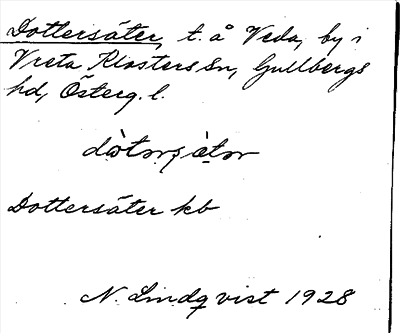 Dottersäter, t. å Veda, by i
Vreta Klosters sn, Gullbergs
hd, Österg. l.
Dottersäter kb
N. Lindqvist 1928